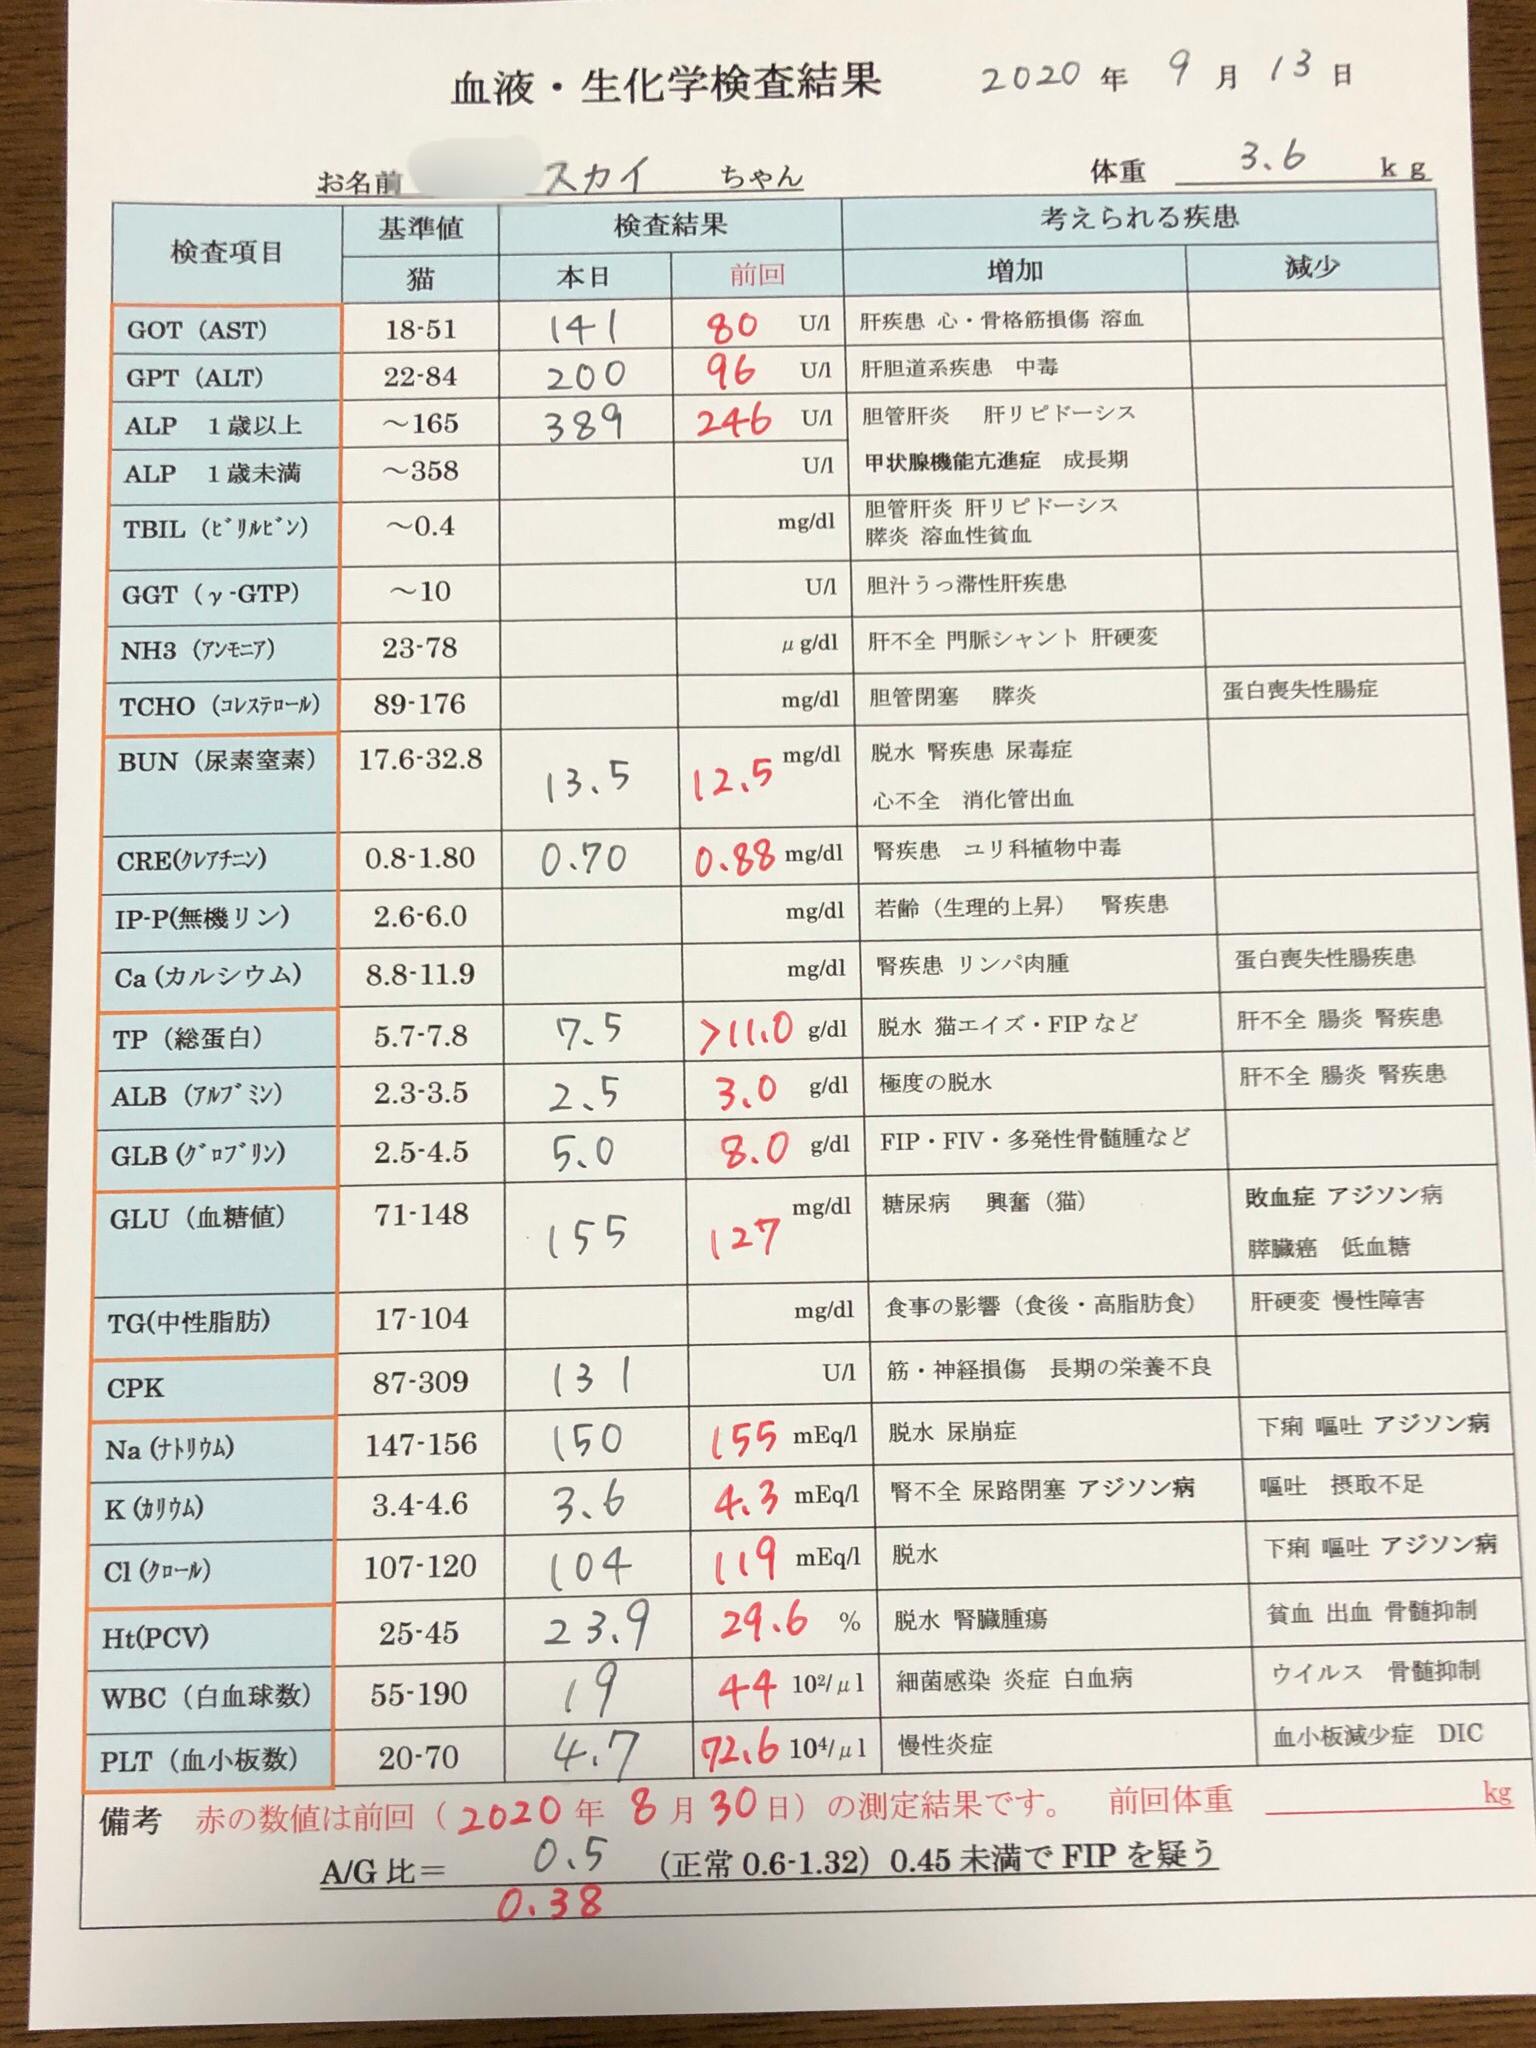 血液・生化学検査結果 2020年 9月 13日
お名前 スカイ ちゃん 体重 3.6 kg
検査項目 基準値 検査結果 考えられる疾患
猫 本日 前回 増加 減少
GOT (AST) 18-51 141 80 U/l 肝疾患 心・骨格筋損傷 溶血
GPT (ALT) 22-84 200 96 U/l 肝胆道系疾患 中毒
ALP 1歳以上 ~165 389 246 U/l 胆管肝炎 肝リピドーシス
ALP 1歳未満 ~358 U/l 甲状腺機能亢進症 成長期
TBIL (ﾋﾞﾘﾙﾋﾞﾝ) ~0.4 mg/dl 胆管肝炎 肝リピドーシス
膵炎 溶血性貧血
GGT (γ-GTP) ~10 U/l 胆汁うっ滞性肝疾患
NH3 (ｱﾝﾓﾆｱ) 23-78 μg/dl 肝不全 門脈シャント 肝硬変
TCHO (ｺﾚｽﾃﾛｰﾙ) 89-176 mg/dl 胆管閉塞 膵炎 蛋白喪失性腸症
BUN (尿素窒素) 17.6-32.8 13.5 12.5 mg/dl 脱水 腎疾患 尿毒症
心不全 消化管出血
CRE(ｸﾚｱﾁﾆﾝ) 0.8-1.80 0.70 0.88 mg/dl 腎疾患 ユリ科植物中毒
IP-P(無機リン) 2.6-6.0 mg/dl 若齢（生理的上昇） 腎疾患
Ca (カルシウム) 8.8-11.9 mg/dl 腎疾患 リンパ肉腫 蛋白喪失性腸疾患
TP (総蛋白) 5.7-7.8 7.5 >11.0 g/dl 脱水 猫エイズ・FIP など 肝不全 腸炎 腎疾患
ALB (ｱﾙﾌﾞﾐﾝ) 2.3-3.5 2.5 3.0 g/dl 極度の脱水 肝不全 腸炎 腎疾患
GLB (ｸﾞﾛﾌﾞﾘﾝ) 2.5-4.5 5.0 8.0 g/dl FIP・FIV・多発性骨髄腫など
GLU (血糖値) 71-148 155 127 mg/dl 糖尿病 興奮（猫） 敗血症 アジソン病
膵臓癌 低血糖
TG(中性脂肪) 17-104 mg/dl 食事の影響（食後・高脂肪食） 肝硬変 慢性障害
CPK 87-309 131 U/l 筋・神経損傷 長期の栄養不良
Na (ﾅﾄﾘｳﾑ) 147-156 150 155 mEq/l 脱水 尿崩症 下痢 嘔吐 アジソン病
K (ｶﾘｳﾑ) 3.4-4.6 3.6 4.3 mEq/l 腎不全 尿路閉塞 アジソン病 嘔吐 摂取不足
Cl (ｸﾛｰﾙ) 107-120 104 119 mEq/l 脱水 下痢 嘔吐 アジソン病
Ht(PCV) 25-45 23.9 29.6 % 脱水 腎臓腫瘍 貧血 出血 骨髄抑制
WBC (白血球数) 55-190 19 44 10²/μl 細菌感染 炎症 白血病 ウイルス 骨髄抑制
PLT (血小板数) 20-70 4.7 72.6 10⁴/μl 慢性炎症 血小板減少症 DIC
備考 赤の数値は前回（2020年 8月30日）の測定結果です。 前回体重 kg
A/G 比＝ 0.5 （正常 0.6-1.32）0.45 未満で FIP を疑う
0.38